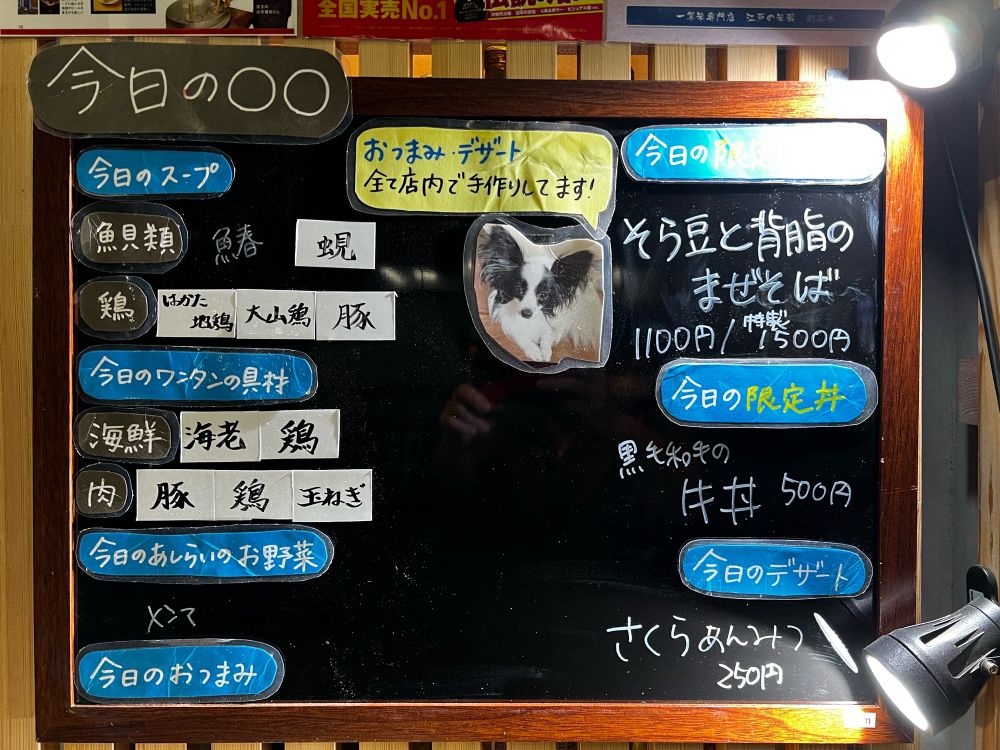 全国実売No.1
一等米専門店 江戸の米蔵
今日の〇〇
今日のスープ
魚貝類 鰆 蜆
鶏 はかた地鶏 大山鶏 豚
今日のワンタンの具材
海鮮 海老 鶏
肉 豚 鶏 玉ねぎ
今日のあしらいのお野菜
メンマ
今日のおつまみ
おつまみ・デザート
全て店内で手作りしてます!
今日の限定
そら豆と背脂の
まぜそば
1100円/特製1500円
今日の限定丼
黒毛和牛の
牛丼 500円
今日のデザート
さくらあんみつ
250円